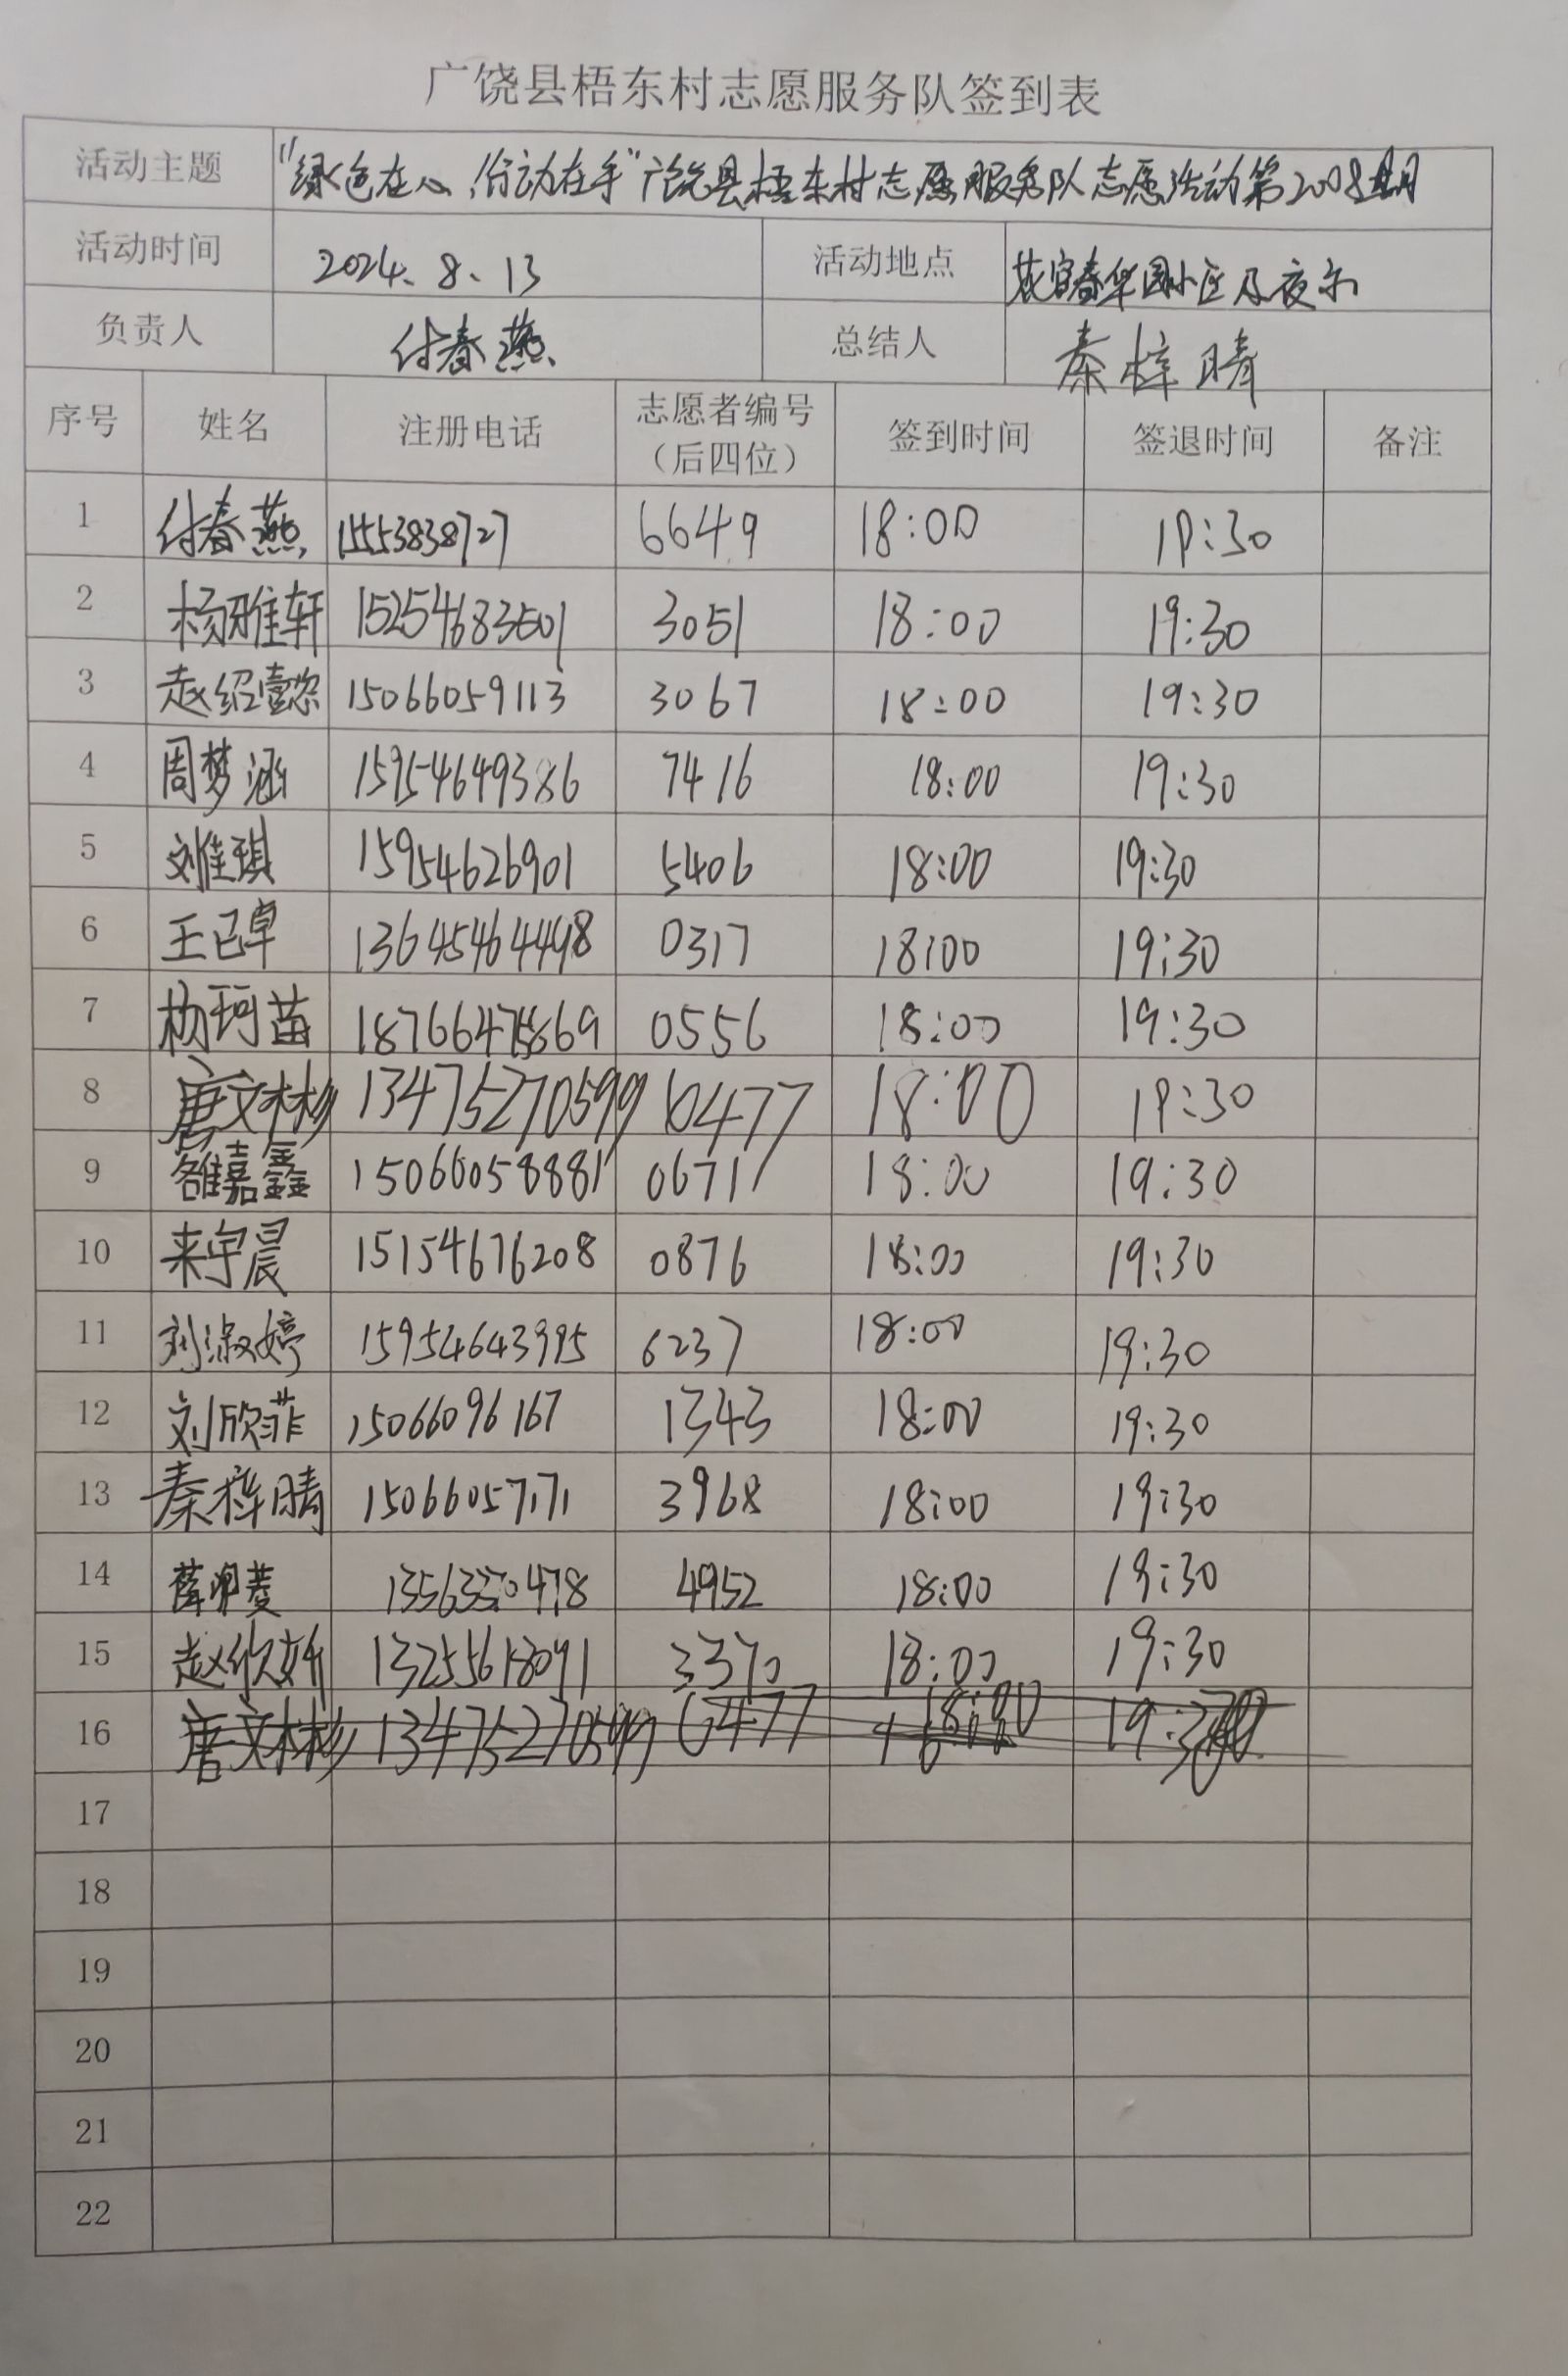 广饶县梧东村志愿服务队签到表
活动主题 "绿色在心,行动在手"广饶县梧东村志愿服务队志愿活动第2008期
活动时间 2024.8.13 活动地点 花官春华园小区及夜市
负责人 付春燕 总结人 秦梓晴
序号 姓名 注册电话 志愿者编号（后四位） 签到时间 签退时间 备注
1 付春燕 15553838727 6649 18:00 19:30
2 杨雅轩 15254683501 3051 18:00 19:30
3 赵绍懿 15066059113 3067 18:00 19:30
4 周梦涵 15954649386 7416 18:00 19:30
5 刘佳琪 15954626901 5406 18:00 19:30
6 王己卓 13645464498 0317 18:00 19:30
7 杨珂苗 0556 18:00 19:30
8 唐文彬 13475270599 0477 18:00 19:30
9 雒嘉鑫 15066058881 0671 18:00 19:30
10 来宇晨 15154676208 0876 18:00 19:30
11 刘淑婷 15954643995 6237 18:00 19:30
12 刘欣菲 15066096167 1343 18:00 19:30
13 秦梓晴 15066057171 3968 18:00 19:30
14 薛 菱 13563370478 4952 18:00 19:30
15 赵欣妍 13255618091 3370 18:00 19:30
16 唐文彬 13475270599 0477 18:00 19:30
17
18
19
20
21
22